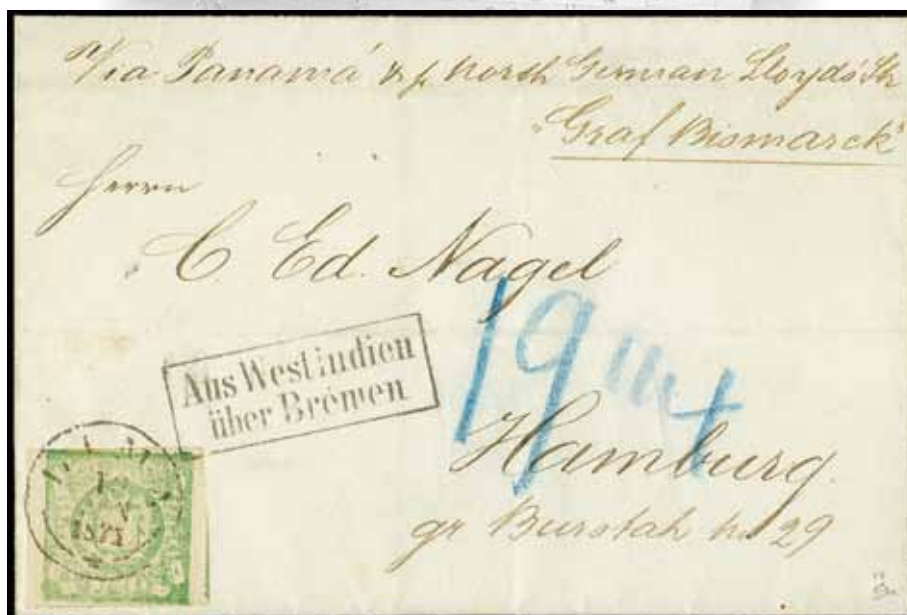 Via Panamá & p. North German Lloyds Str
"Graf Bismarck"
Herrn
C Ed. Nagel
Aus Westindien
über Bremen
19
Hamburg.
gr Burstah No 29
1871